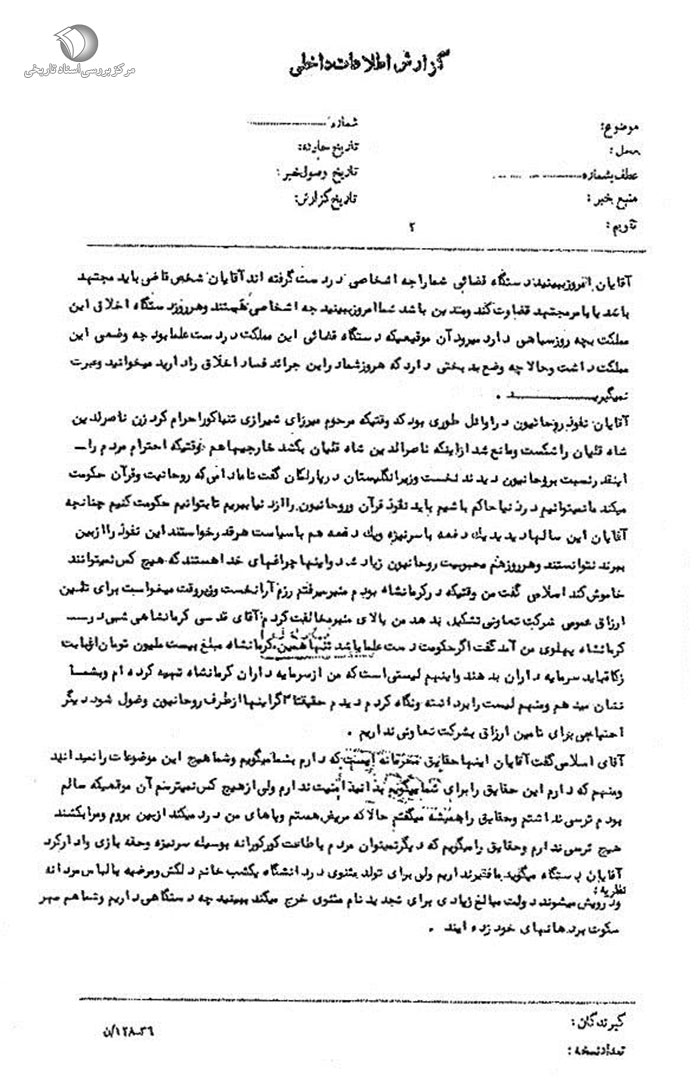 مرکز بررسی اسناد تاریخی
گزارش اطلاعات داخلی
موضوع: شماره
محل: تاریخ حادثه:
عطف بشماره تاریخ وصول خبر:
منبع خبر: تاریخ گزارش:
تقویم: ۲
آقایان امروز ببینید دستگاه قضائی شما را چه اشخاصی در دست گرفته اند آقایان شخص قاضی باید مجتهد
باشد یا بامر مجتهد قضاوت کند ومتدین باشد شما امروز ببینید چه اشخاصی هستند وهر روز دستگاه اخلاق این
مملکت بچه روز سیاهی دارد میرود آن موقعیکه دستگاه قضائی این مملکت در دست علما بود چه وضعی این
مملکت داشت وحالا چه وضع بد بختی دارد که هروز شما در این جرائد فساد اخلاق را دارید میخوانید وعبرت
نمیگیرید .
آقایان نفوذ روحانیون در اوائل طوری بود که وقتیکه مرحوم میرزای شیرازی تنباکو را حرام کرد زن ناصرالدین
شاه قلیان را شکست ومانع شد از اینکه ناصرالدین شاه قلیان بکشد خارجیها هم وقتیکه احترام مردم را
اینقدر نسبت بروحانیون دیدند نخست وزیر انگلیستان در پارلمان گفت تا مادامی که روحانیت وقرآن حکومت
میکند ما نمیتوانیم در دنیا حاکم باشیم باید نفوذ قرآن وروحانیون را از دنیا ببریم تا بتوانیم حکومت کنیم چنانچه
آقایان این سالها دیدید یک دفعه با سرنیزه ویک دفعه هم با سیاست هرقدر خواستند این نفوذ را از بین
ببرند نتوانستند وهر روز هم محبوبیت روحانیون زیاد شد واینها چراغهای خدا هستند که هیچ کس نمیتوانند
خاموش کند اسلامی گفت من وقتیکه در کرمانشاه بودم منبر میرفتم رزم آرا نخست وزیر وقت میخواست برای تامین
ارزاق عمومی شرکت تعاونی تشکیل بدهد من بالای منبر مخالفت کردم آقای قدسی کرمانشاهی شبی در
کرمانشاه پهلوی من آمد گفت اگر حکومت دست علما باشد تنها همین کرمانشاه مبلغ بیست ملیون تومان از بابت
زکات باید سرمایه داران بدهند واینهم لیستی است که من از سرمایه داران کرمانشاه تهیه کرده ام وبشما
نشان میدهم ومنهم لیست را برداشته ونگاه کردم دیدم حقیقتا اگر اینها از طرف روحانیون وصول شود دیگر
احتیاجی برای تامین ارزاق بشرکت تعاونی نداریم .
آقای اسلامی گفت آقایان اینها حقایق محرمانه ایست که دارم بشما میگویم وشما هیچ این موضوعات را نمیدانید
ومنهم که دارم این حقایق را برای شما میگویم بدانید امنیت ندارم ولی از هیچ کس نمیترسم آن موقعیکه سالم
بودم ترسی نداشتم وحقایق را همیشه میگفتم حالا که مریض هستم وپاهای من درد میکند از بین بروم ومرا بکشند
هیچ ترسی ندارم وحقایق را میگویم که دیگر نمیتوان مردم با طاعت کورکورانه بوسیله سرنیزه وحقه بازی وادار کرد
آقایان دستگاه میگوید ما فقیر نداریم ولی برای تولد مثنوی در دانشگاه یکشب خانم دلکش ومرضیه با لباس مردانه
نظریه:
ودرویش میشوند دولت مبالغ زیادی برای تجدید نام مثنوی خرج میکند ببینید چه دستگاهی داریم وشما هم مهر
سکوت بر دهانهای خود زده ایند .
گیرندگان:
ن/۱۲۸-۳۶
تعداد نسخه: